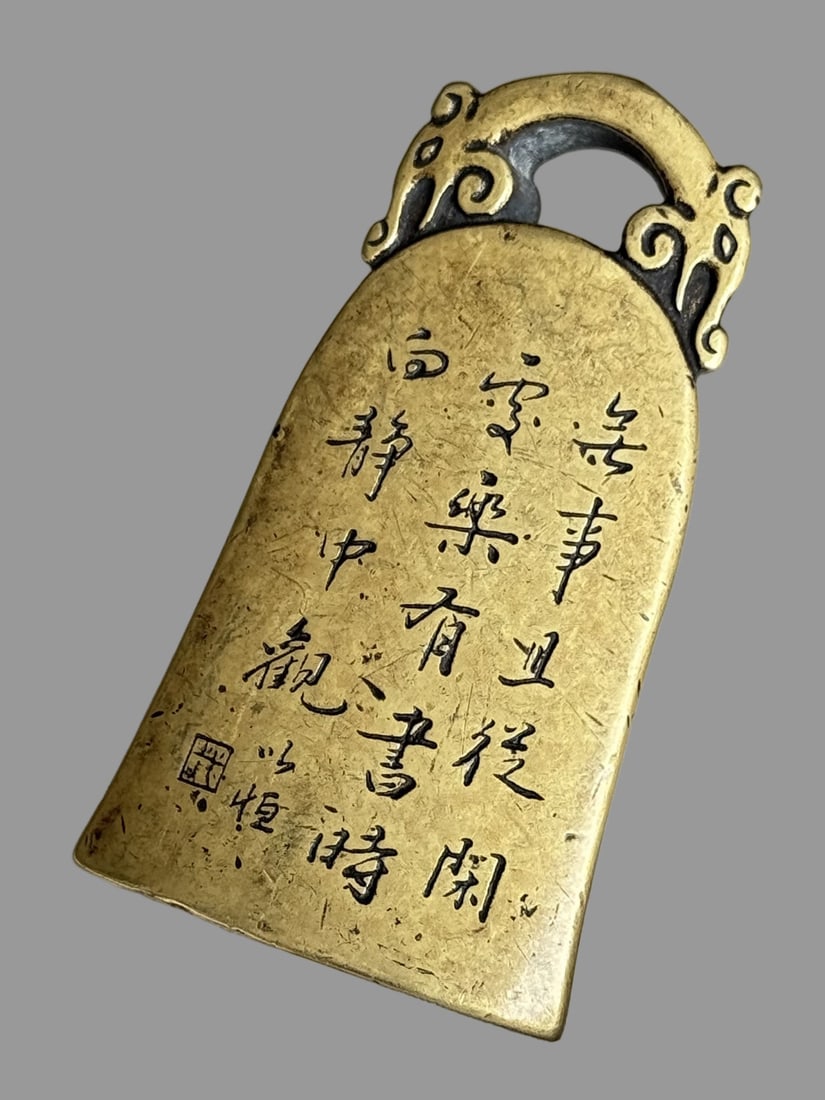 無事且從閑
處樂有書時
向靜中觀
以恒